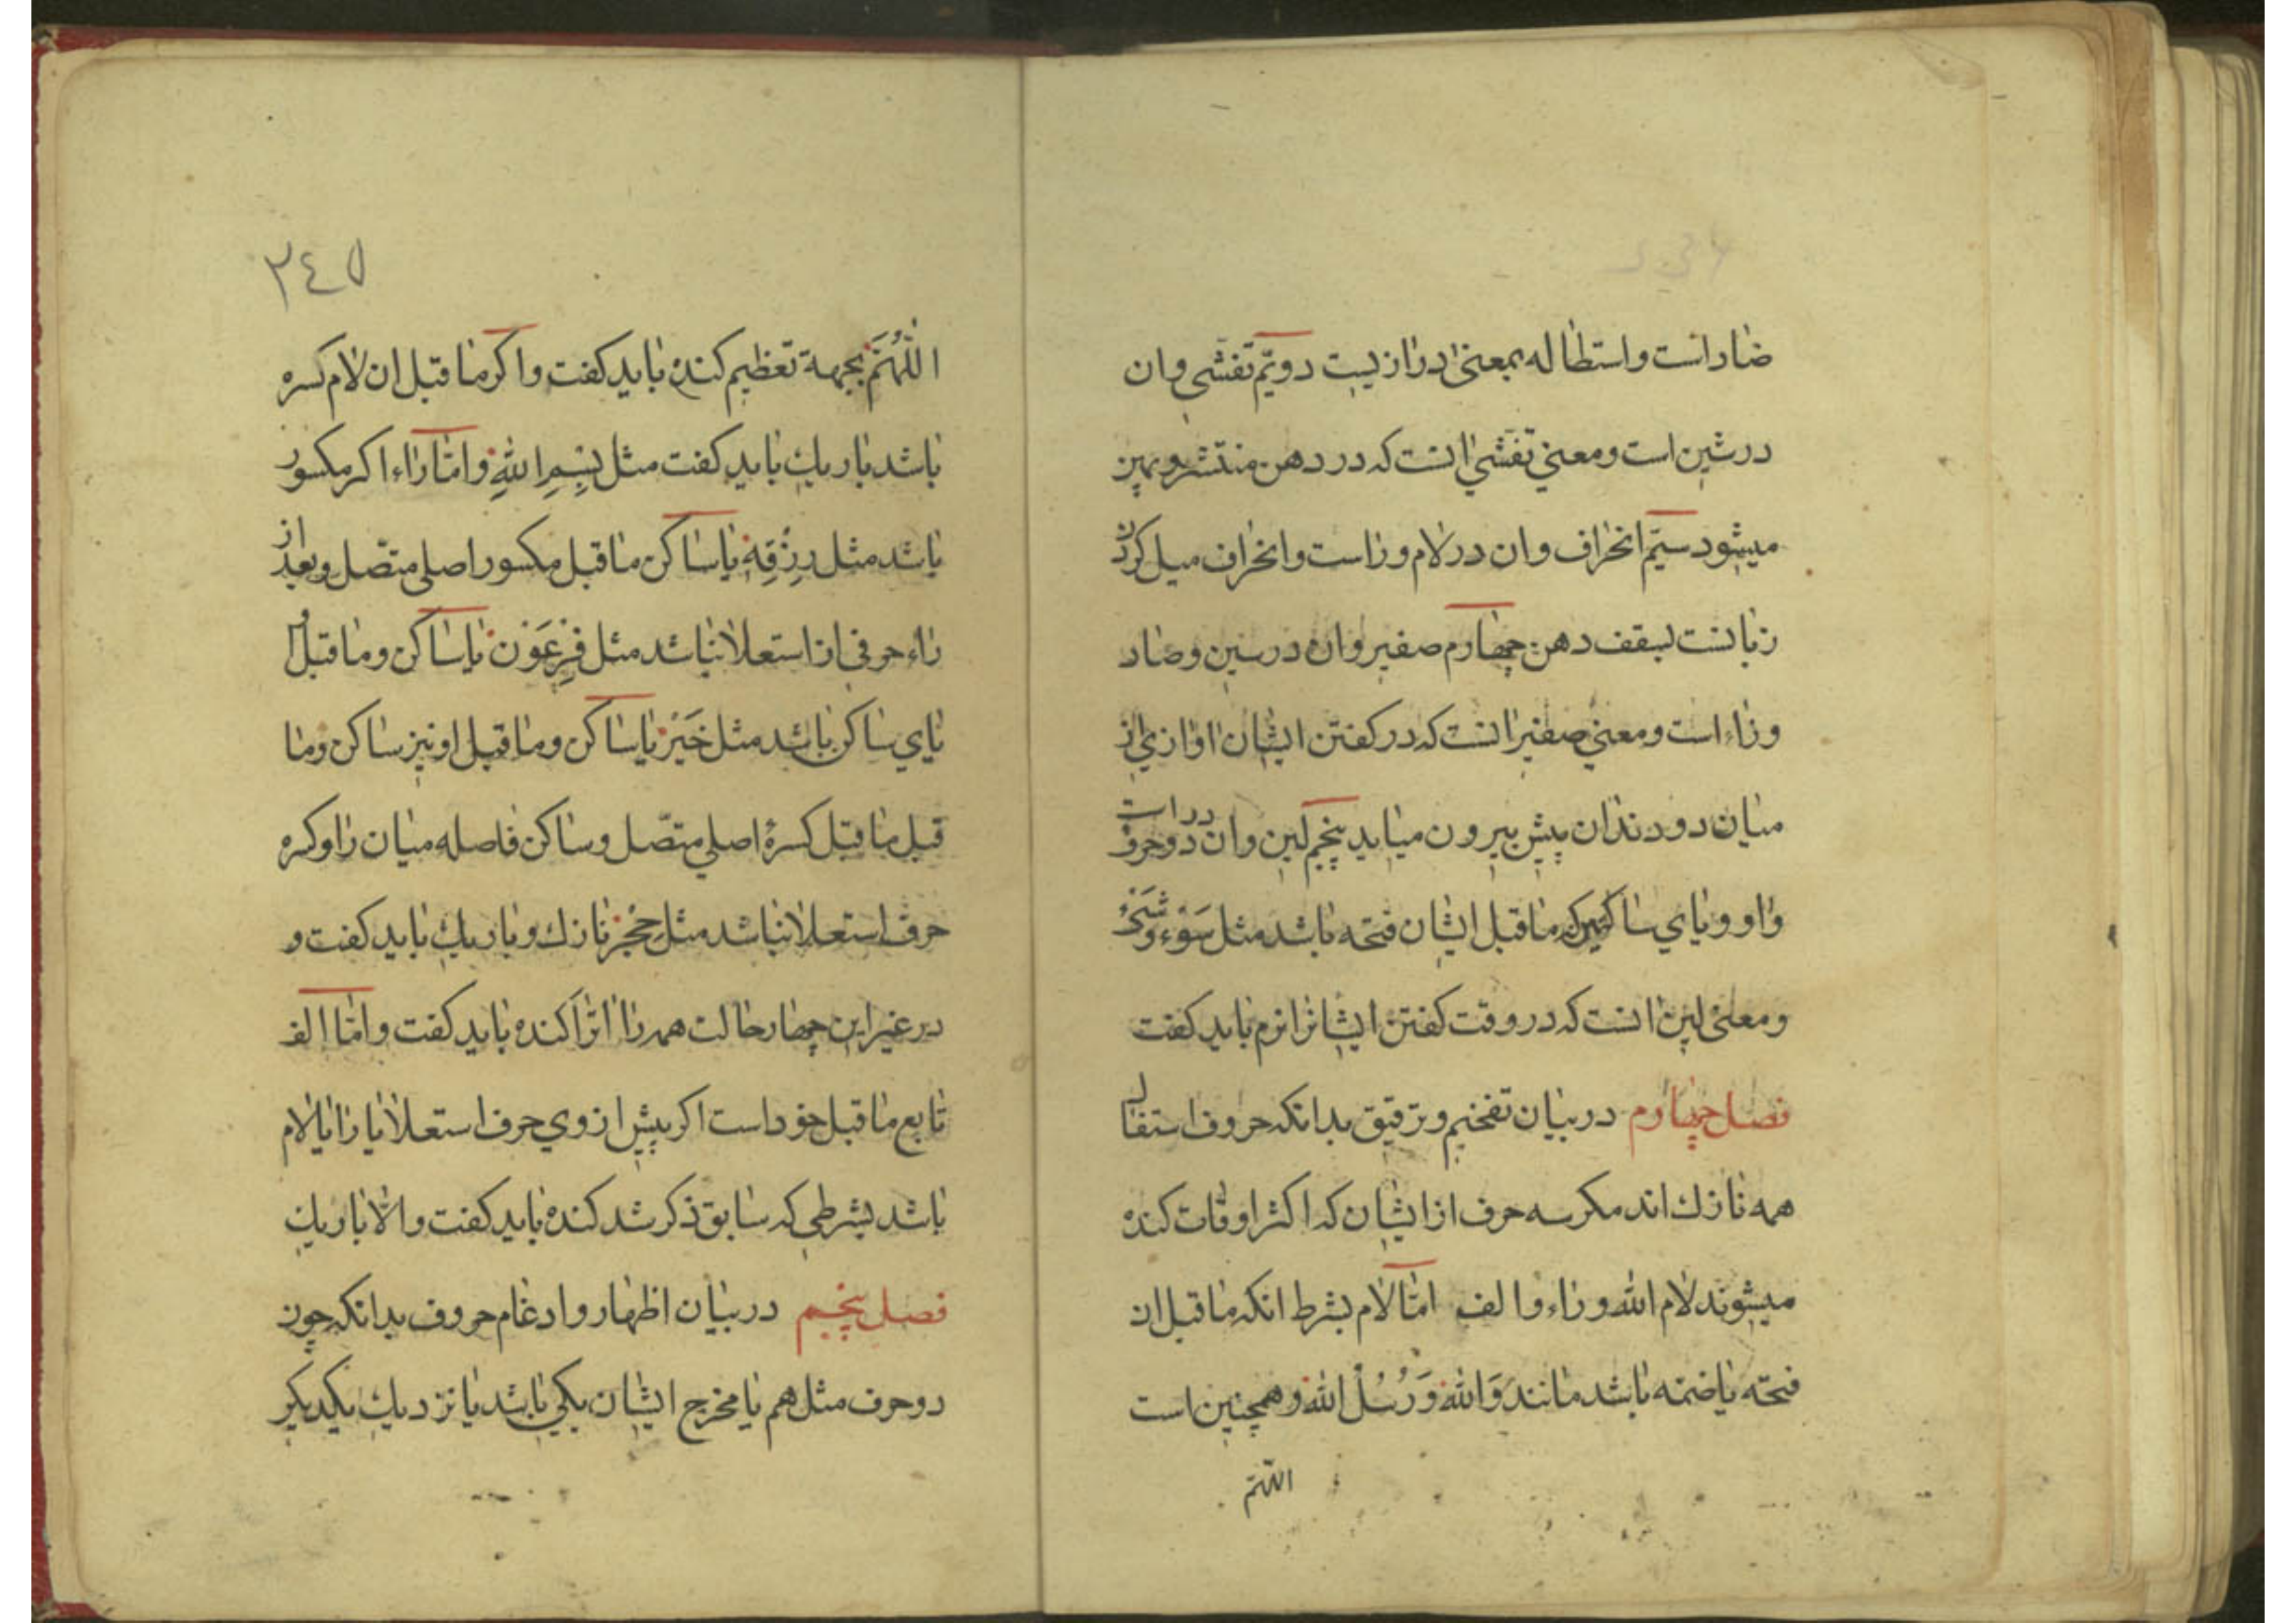 ضاد است و استطاله بمعنی درازیست دویّم تفشّی و ان
در شین است و معنی تفشّی انست که در دهن منتشر و پهن
میشود سیّم انحراف و ان در لام و راست و انحراف میل کردن
زبانست بسقف دهن چهارم صفیر و ان در سین و صاد
و زاء است و معنی صفیر انست که در کفتن ایشان اوازی از
میان دو دندان پیش بیرون میاید پنجم لین و ان در دو حرف است
واو و یای ساکنین که ماقبل ایشان فتحه باشد مثل سَوْء و شَیْء
و معنی لین انست که در وقت کفتن ایشانرا نرم باید کفت
فصل چهارم در بیان تفخیم و ترقیق بدانکه حروف استفال
همه نازك اند مکر سه حرف از ایشان که اکثر اوقات کنده
میشوند لام الله و راء و الف امّا لام بشرط انکه ماقبل ان
فتحه یا ضمّه باشد مانند وَالله وَ رُسُلُ الله و همچنین است
اللّهمّ
۲٤٥
اللّٰهُمَّ بجهة تعظیم کنده باید کفت و اکر ماقبل ان لام کسره
باشد باریك باید کفت مثل بِسْمِ اللهِ و امّا راء اکر مکسور
باشد مثل رِزْقِهِ یا ساکن ماقبل مکسور اصلی متصّل و بعد از
راء حرفی از استعلا نباشد مثل فِرْعَوْن یا ساکن و ماقبل او
یای ساکن باشد مثل خَیْر یا ساکن و ماقبل او نیز ساکن و ما
قبل ماقبل کسرهٔ اصلی متصّل و ساکن فاصله میان را و کسره
حرف استعلا نباشد مثل حِجْر نازك و باریك باید کفت و
در غیر این چهار حالت همه را انرا کنده باید کفت و امّا الف
تابع ماقبل خود است اکر پیش از وی حرف استعلا یا را یا لام
باشد بشرطی که سابق ذکر شد کنده باید کفت و الّا باریك
فصل پنجم در بیان اظهار و ادغام حروف بدانکه چون
دو حرف مثل هم یا مخرج ایشان یکی باشد یا نزدیك بیکدیکر